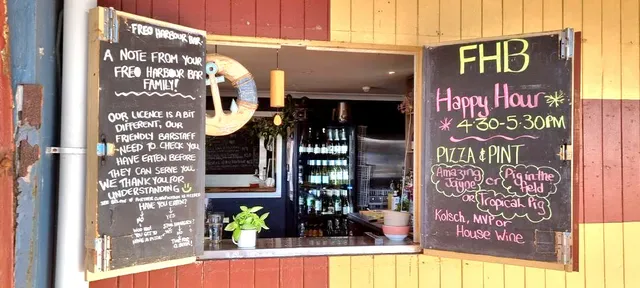 FREO HARBOUR BAR
A NOTE FROM YOUR
FREO HARBOUR BAR
FAMILY!
OUR LICENCE IS A BIT
DIFFERENT, OUR
FRIENDLY BARSTAFF
NEED TO CHECK YOU
HAVE EATEN BEFORE
THEY CAN SERVE YOU.
WE THANK YOU FOR
UNDERSTANDING
HAVE YOU EATEN?
NO
YES
FHB
Happy Hour
4-30-5:30PM
PIZZA & PINT
Amazing
Jayne
or
Pig in the
field
or
Tropical Pig
Kolsch, MVP or
House Wine